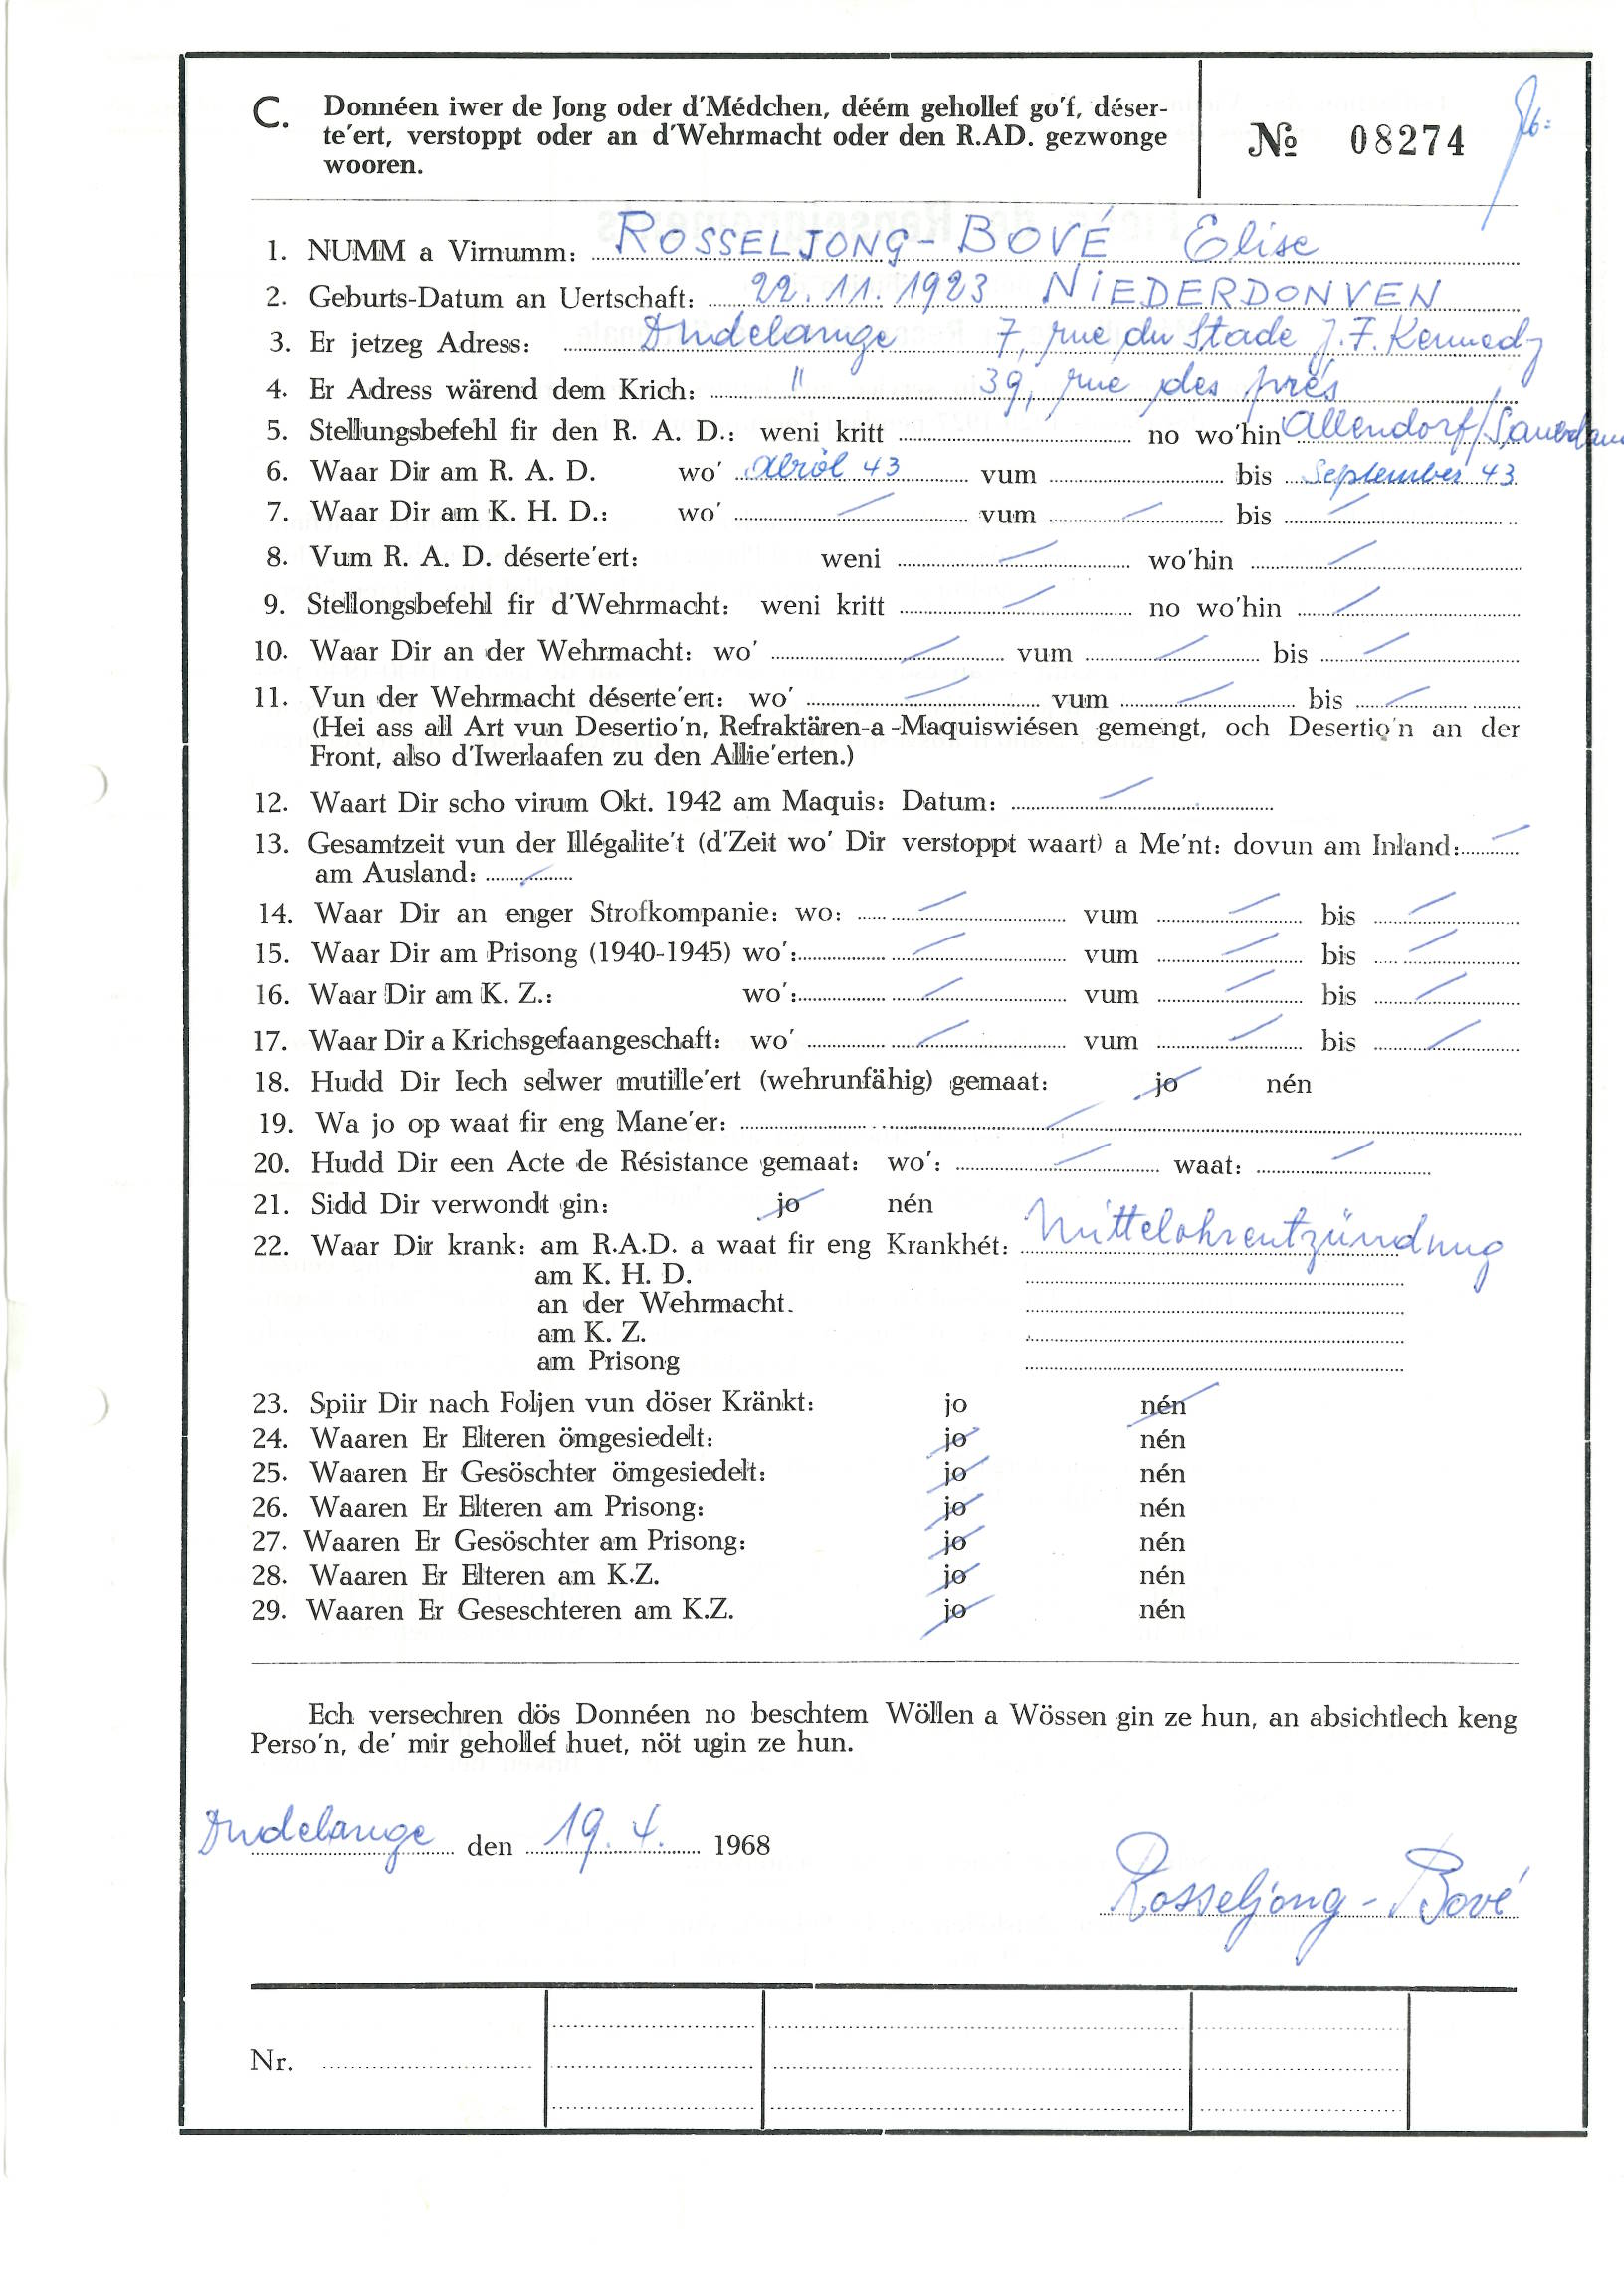 C. Donnéen iwer de Jong oder d'Médchen, déém gehollef go'f, déser-
te'ert, verstoppt oder an d'Wehrmacht oder den R.AD. gezwonge
wooren.
№ 08274
1. NUMM a Virnumm: ROSSELJONG-BOVÉ Elise
2. Geburts-Datum an Uertschaft: 22.11.1923 NIEDERDONVEN
3. Er jetzeg Adress: Dudelange 7, rue du Stade J.F. Kennedy
4. Er Adress wärend dem Krich: " 39, rue des prés
5. Stellungsbefehl fir den R. A. D.: weni kritt no wo'hin Allendorf/Sauerland
6. Waar Dir am R. A. D. wo' 43 vum bis September 43
7. Waar Dir am K. H. D.: wo' / vum / bis /
8. Vum R. A. D. déserte'ert: weni / wo'hin /
9. Stellongsbefehl fir d'Wehrmacht: weni kritt / no wo'hin /
10. Waar Dir an der Wehrmacht: wo' / vum / bis /
11. Vun der Wehrmacht déserte'ert: wo' / vum / bis /
(Hei ass all Art vun Desertio'n, Refraktären-a -Maquiswiésen gemengt, och Desertio'n an der
Front, also d'Iwerlaafen zu den Allie'erten.)
12. Waart Dir scho virum Okt. 1942 am Maquis: Datum: /
13. Gesamtzeit vun der Illégalite't (d'Zeit wo' Dir verstoppt waart) a Me'nt: dovun am Inland: /
am Ausland: /
14. Waar Dir an enger Strofkompanie: wo: / vum / bis /
15. Waar Dir am Prisong (1940-1945) wo': / vum / bis /
16. Waar Dir am K. Z.: wo': / vum / bis /
17. Waar Dir a Krichsgefaangeschaft: wo' / vum / bis /
18. Hudd Dir Iech selwer mutille'ert (wehrunfähig) gemaat: jo nén
19. Wa jo op waat fir eng Mane'er: /
20. Hudd Dir een Acte de Résistance gemaat: wo': / waat: /
21. Sidd Dir verwondt gin: jo nén
22. Waar Dir krank: am R.A.D. a waat fir eng Krankhét: Mittelohrentzündung
am K. H. D.
an der Wehrmacht.
am K. Z.
am Prisong
23. Spiir Dir nach Foljen vun döser Kränkt: jo nén
24. Waaren Er Elteren ömgesiedelt: jo nén
25. Waaren Er Gesöschter ömgesiedelt: jo nén
26. Waaren Er Elteren am Prisong: jo nén
27. Waaren Er Gesöschter am Prisong: jo nén
28. Waaren Er Elteren am K.Z. jo nén
29. Waaren Er Geseschteren am K.Z. jo nén
Ech versechren dös Donnéen no beschtem Wöllen a Wössen gin ze hun, an absichtlech keng
Perso'n, de' mir gehollef huet, nöt ugin ze hun.
Dudelange den 19.4. 1968
Rosseljong-Bové
Nr.